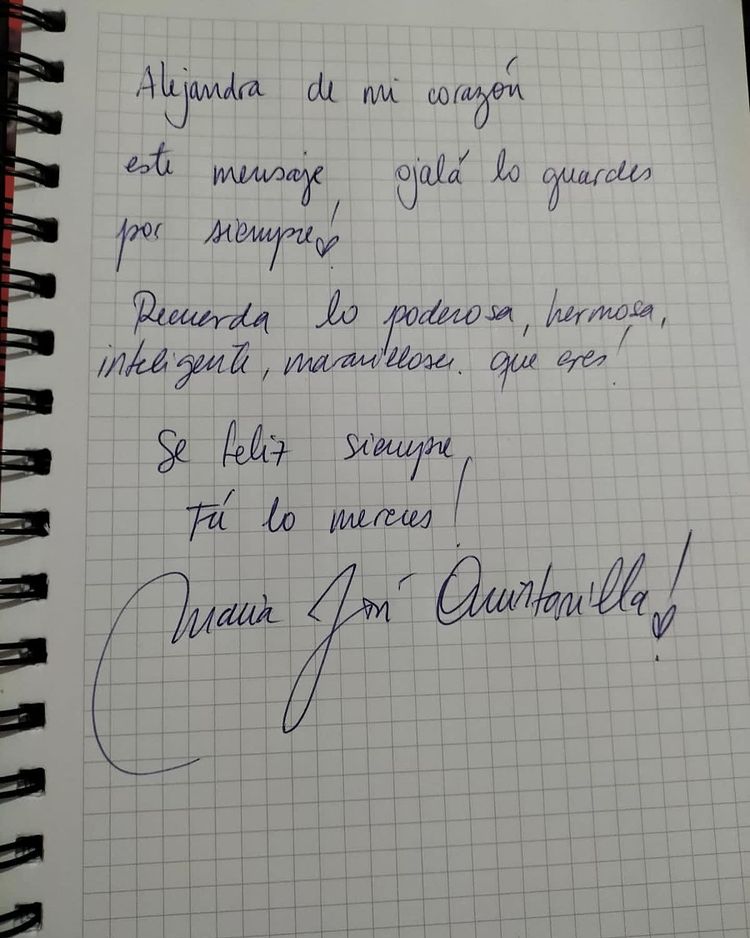 Alejandra de mi corazón
este mensaje ojalá lo guardes
por siempre!
Recuerda lo poderosa, hermosa,
inteligente, maravillosa. que eres!
Se feliz siempre,
Tú lo mereces!
Maria José Quintanilla!